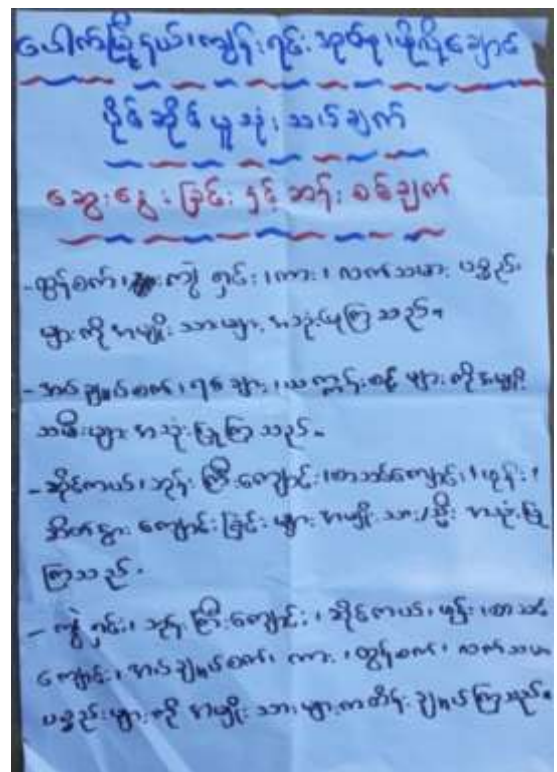 ပေါက်မြို့နယ်၊ကျွန်းရင်းအုပ်စု၊ဖိုလိုချောင်
ပိုင်ဆိုင်ယူသုံးသပ်ချက်
ဆွေးနွေးခြင်းနှင့်ဆန်းစစ်ချက်
-ထွန်စက်၊ ကျွဲ ရှင်း၊ကား၊ လက်သမား ပစ္စည်း
များကို အမျိုးသားများ အသုံးပြုကြသည်။
-အပ်ချုပ်စက်၊ရစ်ချား၊ယက္ကန်းစင်များကိုအမျိုး
သမီးများ အသုံးပြုကြသည်။
-ဆိုင်ကယ်၊ဘုန်းကြီးကျောင်း၊စာသင်ကျောင်း၊ဖုန်း၊
အိတ် နွားကျောင်းခြင်းများ အမျိုးသား/မီး အသုံးပြု
ကြသည်။
- ကျွဲ ရှင်း၊ ဘုန်းကြီးကျောင်း၊ ဆိုင်ကယ်၊ ဖုန်း၊စာသင်
ကျောင်း၊ အပ်ချုပ်စက်၊ ကား၊ ထွန်စက်၊ လက်သမား
ပစ္စည်းများကို အမျိုးသားများကထိန်းချုပ်ကြသည်။